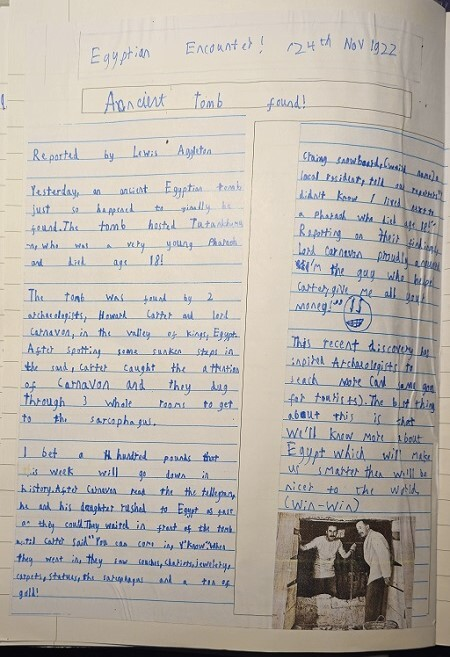 Egyptian Encounter! 24th Nov 1922
Ancient tomb found!
Reported by Lewis Aggleton
Yesterday, an ancient Egyptian tomb
just so happened to finally be
found. The tomb hosted Tutankham
un, who was a very young Pharaoh
and died age 18!
The tomb was found by 2
archaeologists, Howard Carter and lord
Carnavon, in the valley of kings, Egypt.
After spotting some sunken steps in
the sand, Carter caught the attention
of Carnavon and they dug
through 3 whole rooms to get
to the sarcophagus.
I bet a hundred pounds that
is week will go down in
history. After Carnavon read the the tellegram,
he and his daughter rushed to Egypt as fast
as they could. They waited in front of the tomb
until Carter said "You can come in, Y'Know". When
they went in, they saw couches, chariots, jewelery,
carpets, statues, the sarcophagus and a ton of
gold!
snowboards
local resident, told our reporters "I
didn't know I lived next to
a pharaoh who died age 18!"
Reporting on their findings,
Lord Carnavon proudly
"I'm the guy who helped
Carter, give me all your
money!"
This recent discovery has
inspired Archaeologists to
seach more (and some goes
for tourists). The best thing
about this is that
We'll know more about
Egypt which will make
us smarter then we'll be
nicer to the world
(Win-Win)